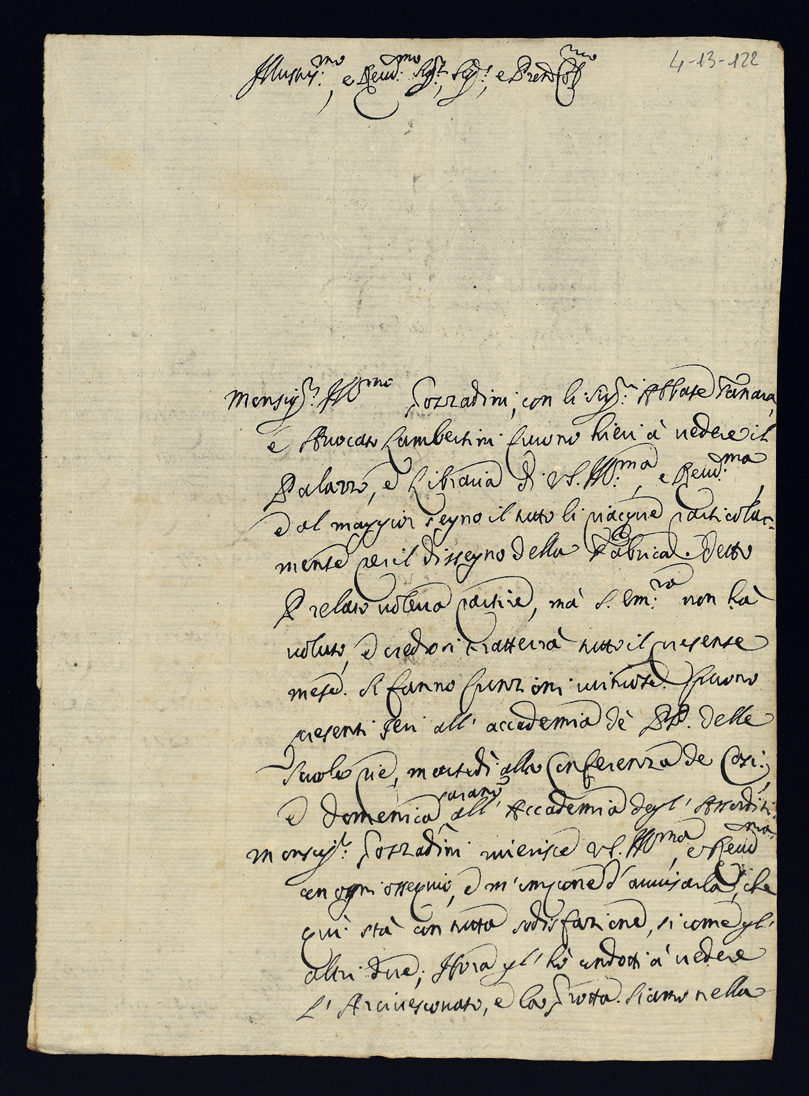 4-13-122
Illustriss.mo, e Reud.mo Sig.r, Sig.r, e Pron Col.mo
Monsig.r Ill.mo Gozzadini, con li Sig.ri Abbate Tanara,
e Auocato Lambertini furono hieri à uedere il
Palazzo, e Libraria di VS. Ill.ma, e Reud.ma,
e al maggior segno il tutto li piacque particolar-
mente per il dissegno della Fabrica. Detto
Prelato uoleua partire, mà S. Em.za non hà
uoluto, e credo si tratterrà tutto il presente
mese. Si fanno funzioni uirtuose. Furono
presenti Ieri all' accademia dè PP. delle
Scuole Pie, martedì alla Conferenza de Casi,
e domenica saranno all' Accademia degl'
Monsig.r Gozzadini riuerisce VS. Ill.ma, e Reud.ma
con ogni ossequio, e m'impone d'auuisarla, che
qui stà con tutta sodisfazione, si come gl'
altri due; Hora gl' hò condotti à uedere
l' Arciuescouato, e la Grotta. Siamo nella